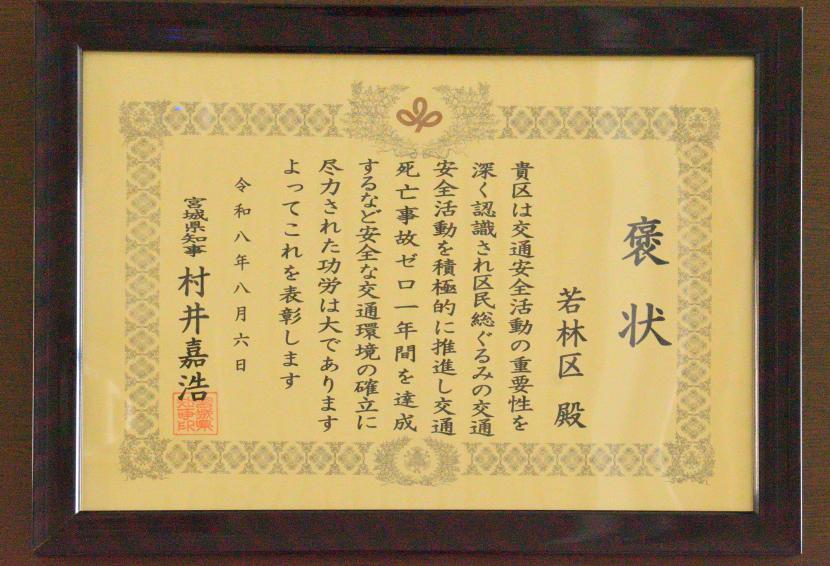 褒状
若林区 殿
貴区は交通安全活動の重要性を
深く認識され区民総ぐるみの交通
安全活動を積極的に推進し交通
死亡事故ゼロ一年間を達成
するなど安全な交通環境の確立に
尽力された功労は大であります
よってこれを表彰します
令和八年八月六日
宮城県知事 村井嘉浩
宮城県
知事印